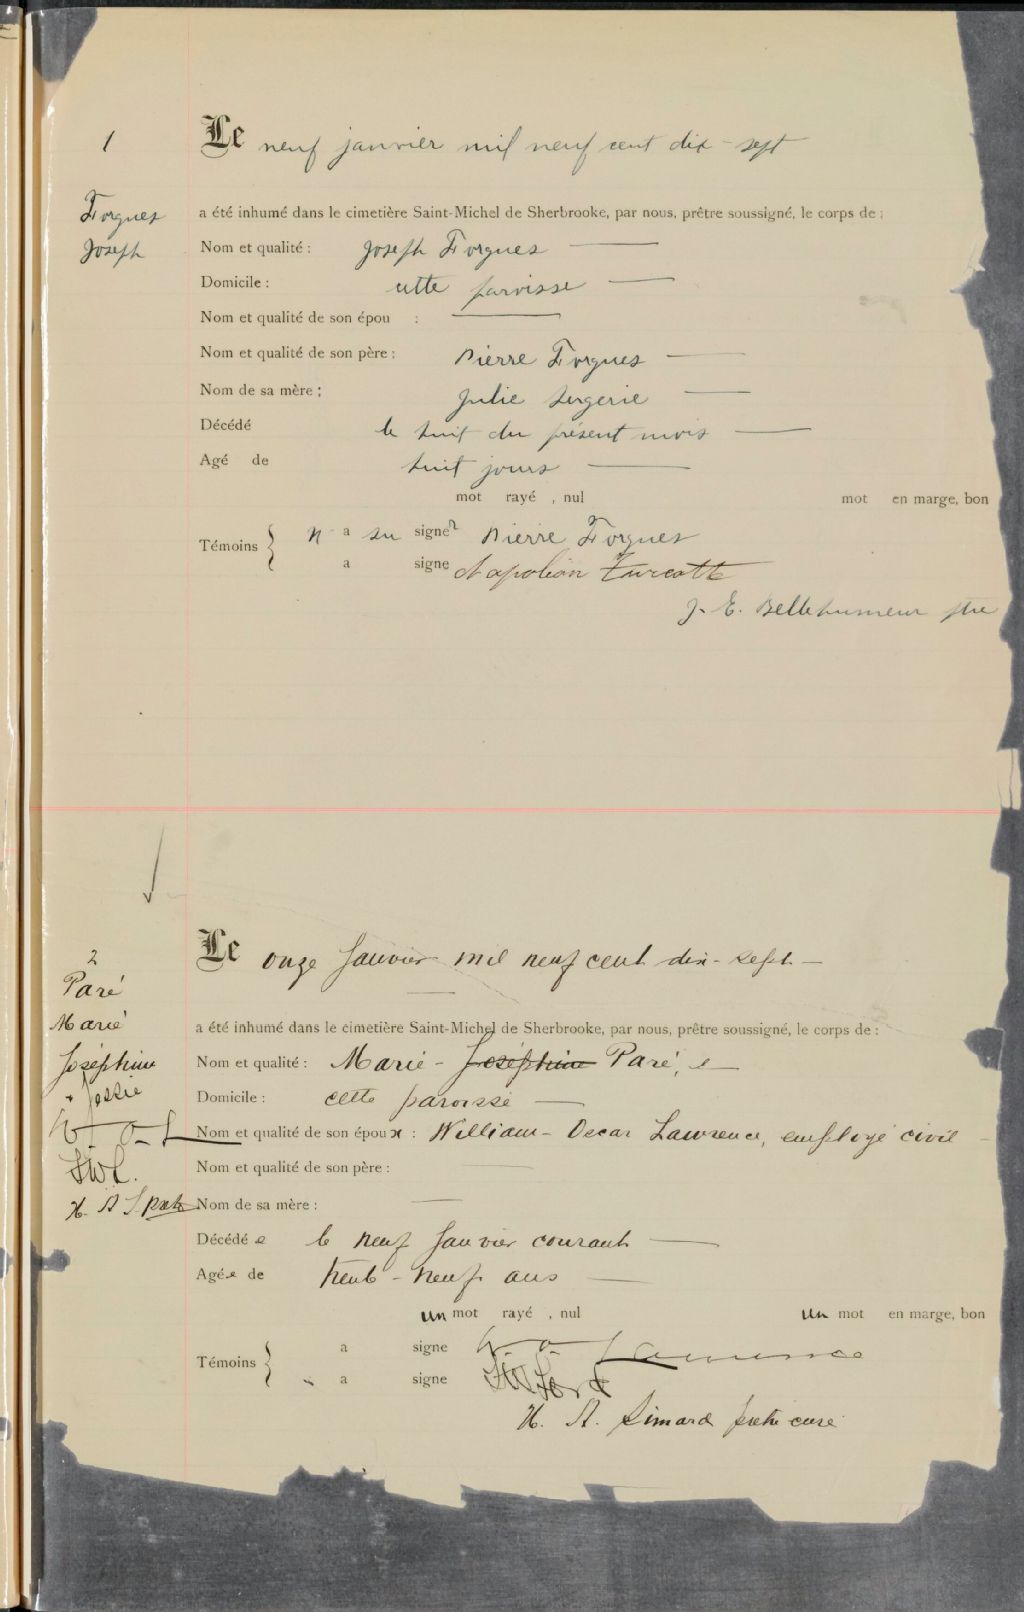 1
Le neuf janvier mil neuf cent dix-sept
Forgues
Joseph
a été inhumé dans le cimetière Saint-Michel de Sherbrooke, par nous, prêtre soussigné, le corps de :
Nom et qualité : Joseph Forgues
Domicile : cette paroisse
Nom et qualité de son épou :
Nom et qualité de son père : Pierre Forgues
Nom de sa mère : Julie
Décédé le huit du présent mois
Agé de huit jours
mot rayé , nul mot en marge, bon
Témoins { n'a su signer Pierre Forgues
a signé Napoléon Turcotte
J. E. Bellehumeur ptre
2
Le onze Janvier mil neuf cent dix-sept
Paré
Marie
Joséphine
x Jessie
W-O-L
H. A. S. Ptre
a été inhumé dans le cimetière Saint-Michel de Sherbrooke, par nous, prêtre soussigné, le corps de :
Nom et qualité : Marie-Joséphine Paré,
Domicile : cette paroisse
Nom et qualité de son époux : William-Oscar Lawrence, employé civil
Nom et qualité de son père :
Nom de sa mère :
Décédée le neuf Janvier courant
Agée de trente-neuf ans
un mot rayé , nul un mot en marge, bon
Témoins { a signé W. O. Lawrence
a signé
H. A. Simard prêtre curé